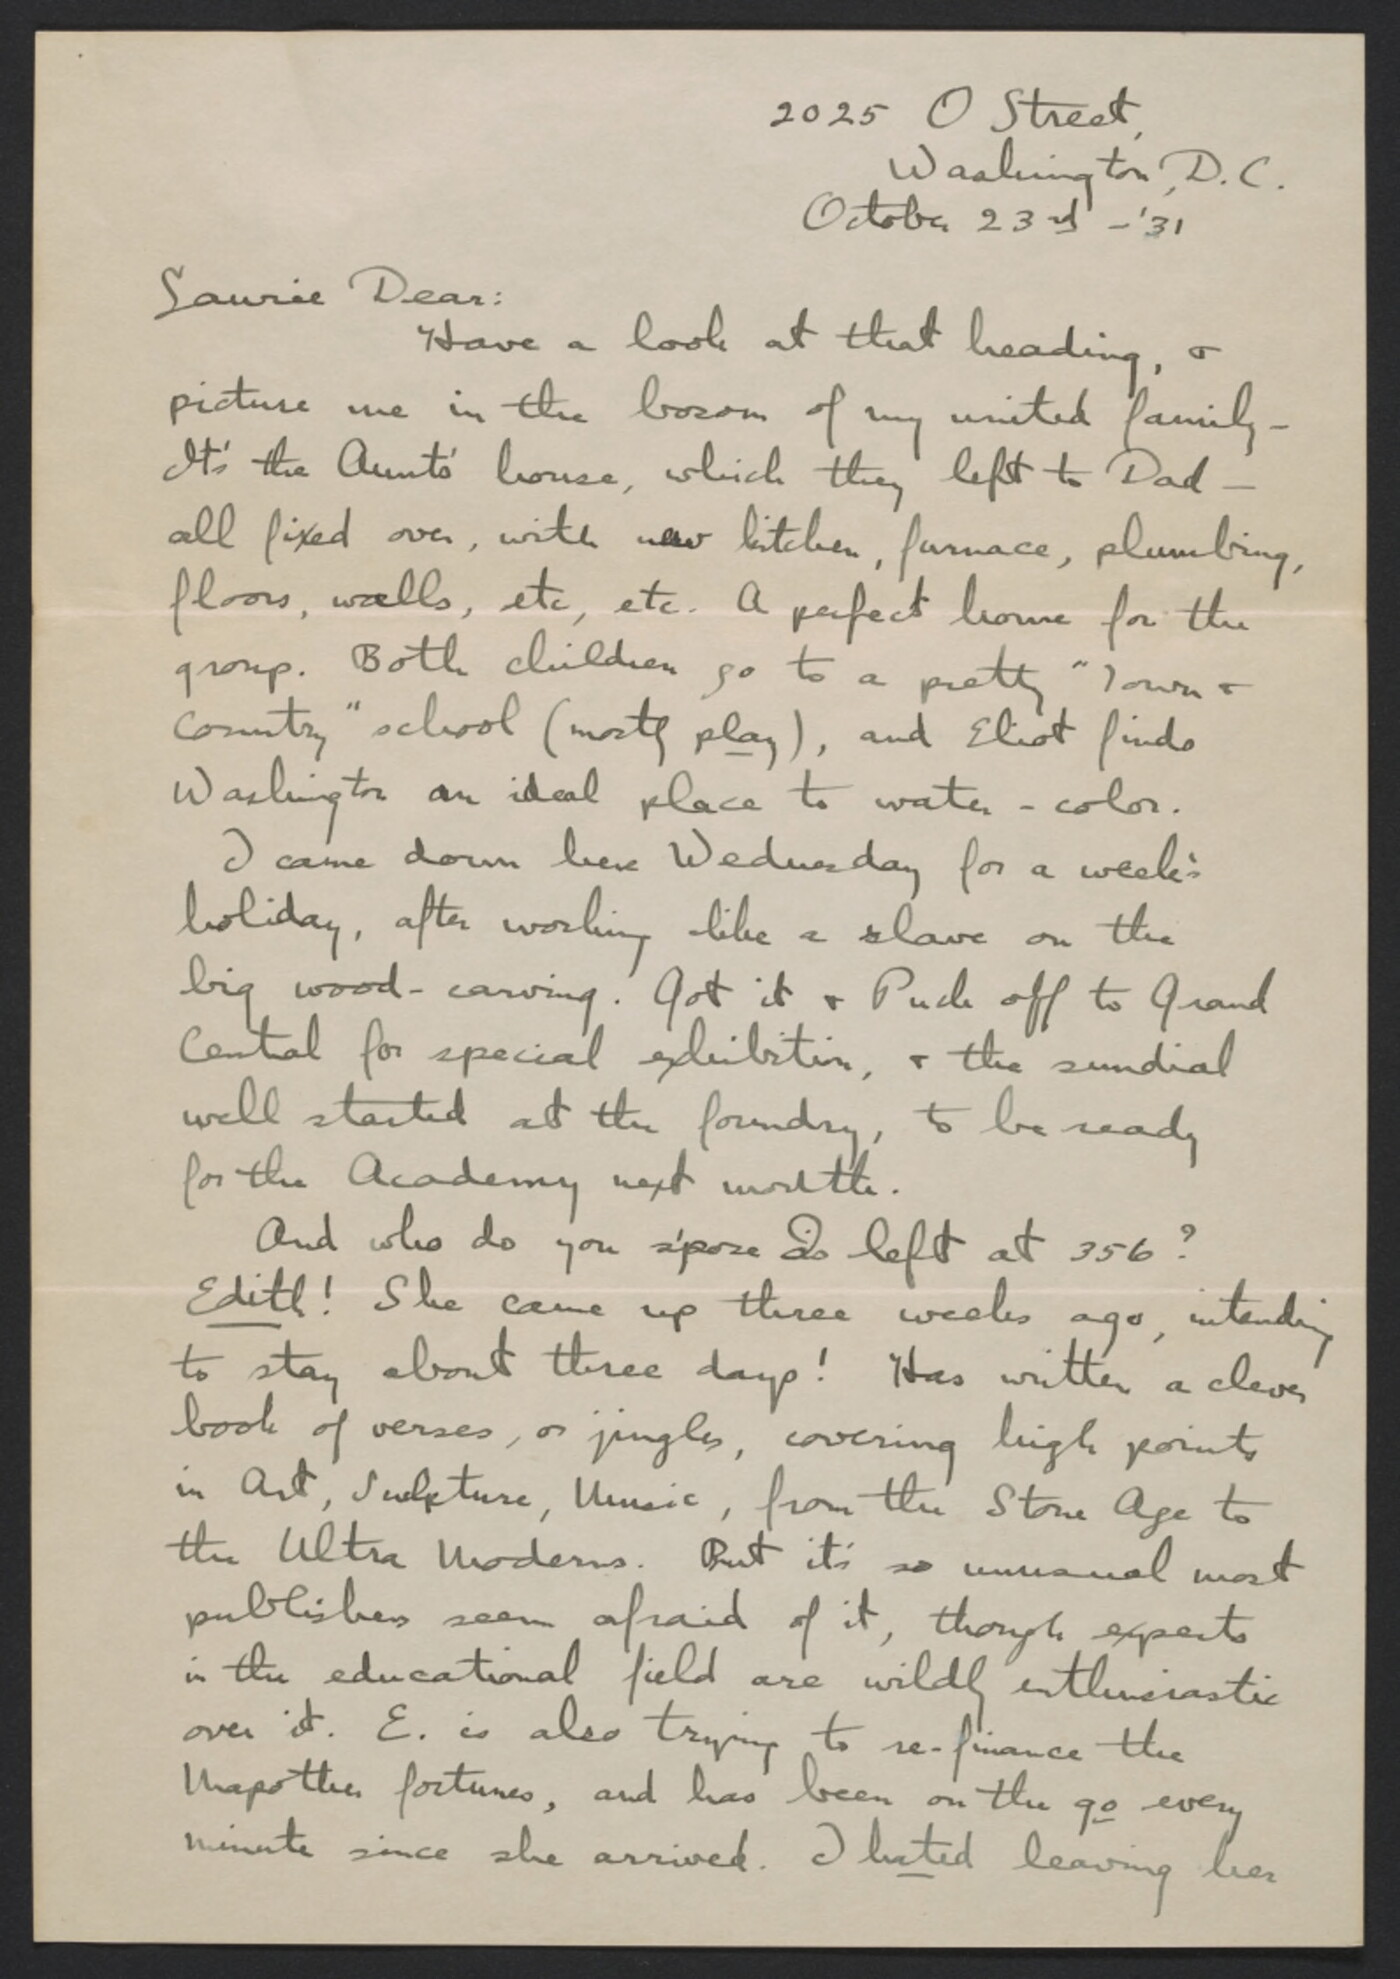 2025 O Street,
Washington, D.C.
October 23rd - '31
Laurie Dear:
Have a look at that heading, &
picture me in the bosom of my united family -
It's the Aunts' house, which they left to Dad -
all fixed over, with new kitchen, furnace, plumbing,
floors, walls, etc, etc. A perfect home for the
group. Both children go to a pretty "Town &
Country" school (mostly play), and Eliot finds
Washington an ideal place to water-color.
I came down here Wednesday for a week's
holiday, after working like a slave on the
big wood-carving. Got it & Puck off to Grand
Central for special exhibition, & the sundial
well started at the foundry, to be ready
for the Academy next month.
And who do you s'pose is left at 356?
Edith! She came up three weeks ago, intending
to stay about three days! Has written a clever
book of verses, or jingles, covering high points
in Art, Sculpture, Music, from the Stone Age to
the Ultra Moderns. But it's so unusual most
publishers seem afraid of it, though experts
in the educational field are wildly enthusiastic
over it. E. is also trying to re-finance the
Mapother fortunes, and has been on the go every
minute since she arrived. I hated leaving her